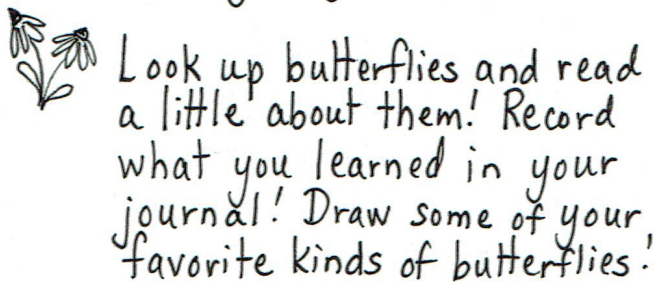 Look up butterflies and read
a little about them! Record
what you learned in your
journal! Draw some of your
favorite kinds of butterflies!